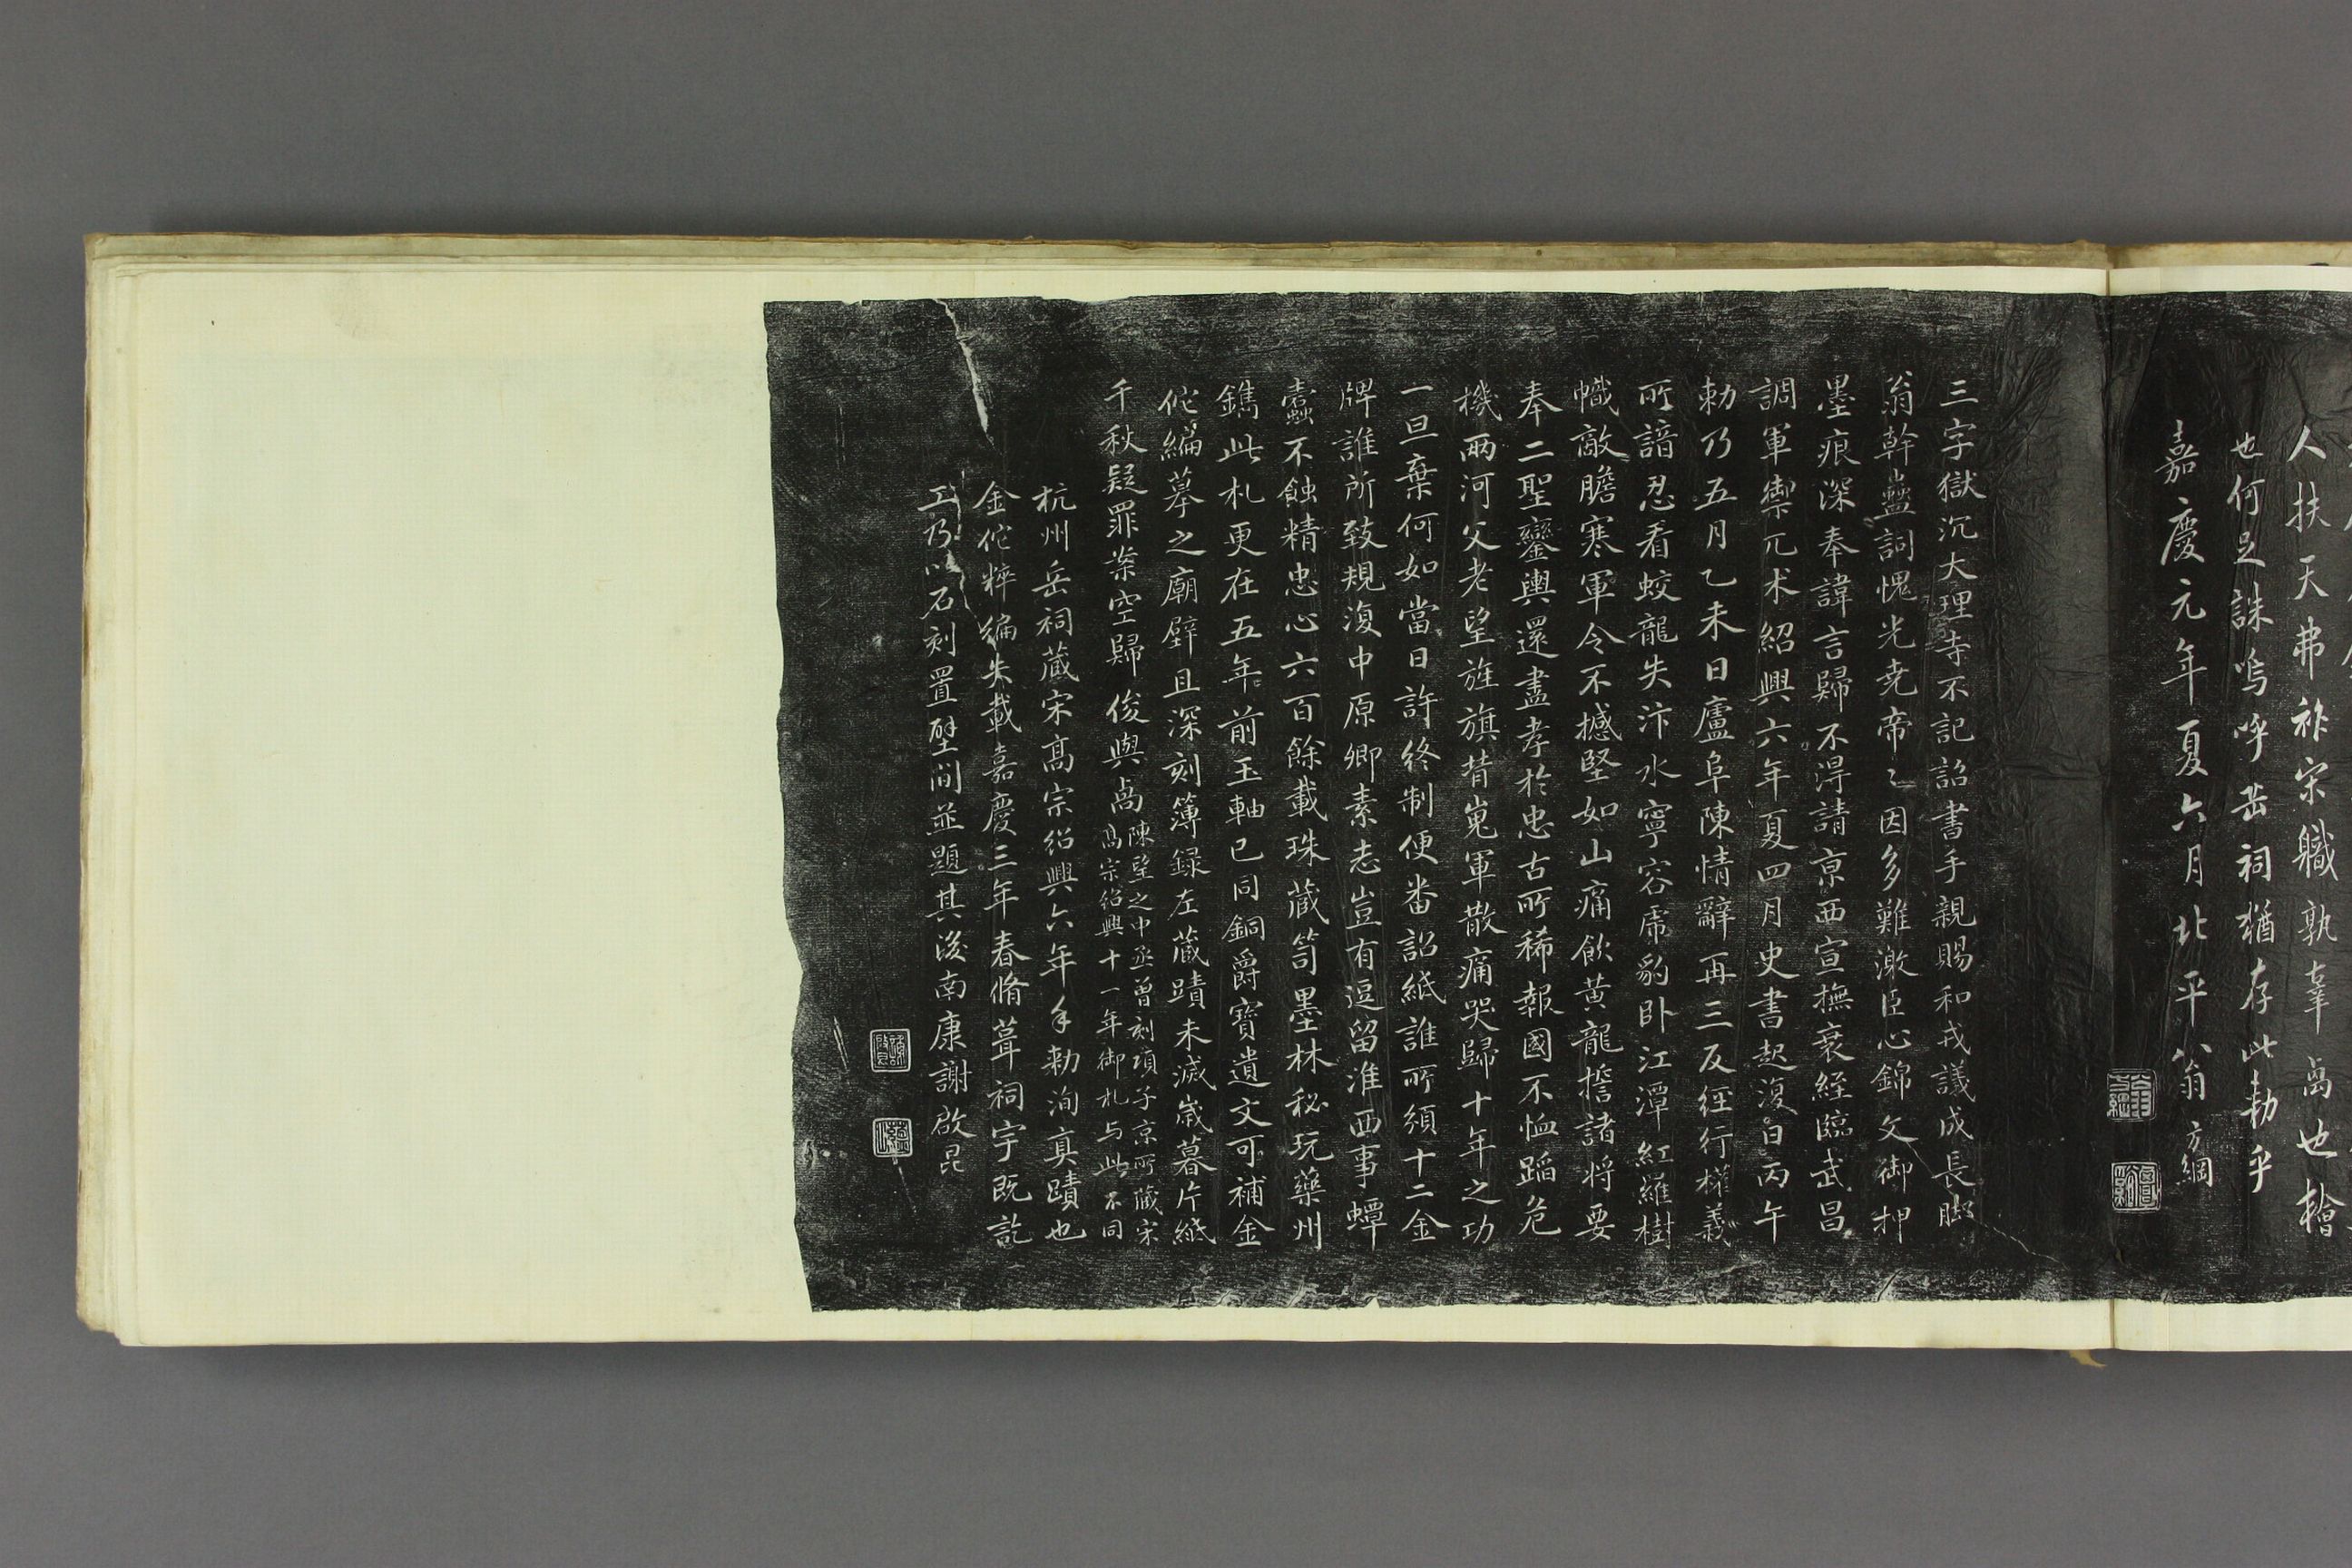 人扶天弗祚宋職孰辜禼也檜
也何足誅嗚呼岳祠猶存此勅乎
嘉慶元年夏六月北平翁方綱
三字獄沉大理寺不記詔書手親賜和戎議成長腳
翁幹蠱詞愧光堯帝〻因多難激臣心錦文御押
墨痕深奉諱言歸不淂請京西宣撫衰絰臨武昌
調軍禦兀术紹興六年夏四月史書起復日丙午
勅乃五月乙未日廬阜陳情辭再三反經行權義
所諳忍看蛟龍失汴水寧容虎豹卧江潭紅羅樹
幟敵膽寒軍令不撼堅如山痛飲黄龍擔諸将要
奉二聖鑾輿還盡孝於忠古所稀報國不恤蹈危
機兩河父老望旌旗昔嵬軍散痛哭歸十年之功
一旦棄何如當日許終制便番詔紙誰所須十二金
牌誰所致規復中原卿素志豈有逗留淮西事蟫
蠹不蝕精忠心六百餘載珠藏笥墨林秘玩藥州
鐫此札更在五年前玉軸已同銅爵寶遺文可補金
佗編摹之廟壁且深刻簿録左藏蹟未滅歲暮片紙
千秋疑罪案空歸俊與禼陳望之中丞曾刻項子京所藏宋
高宗紹興十一年御札与此不同
杭州岳祠藏宋高宗紹興六年手勅洵真蹟也
金佗稡編失載嘉慶三年春脩葺祠宇既訖
工乃以石刻置壁間並題其後南康謝啟昆